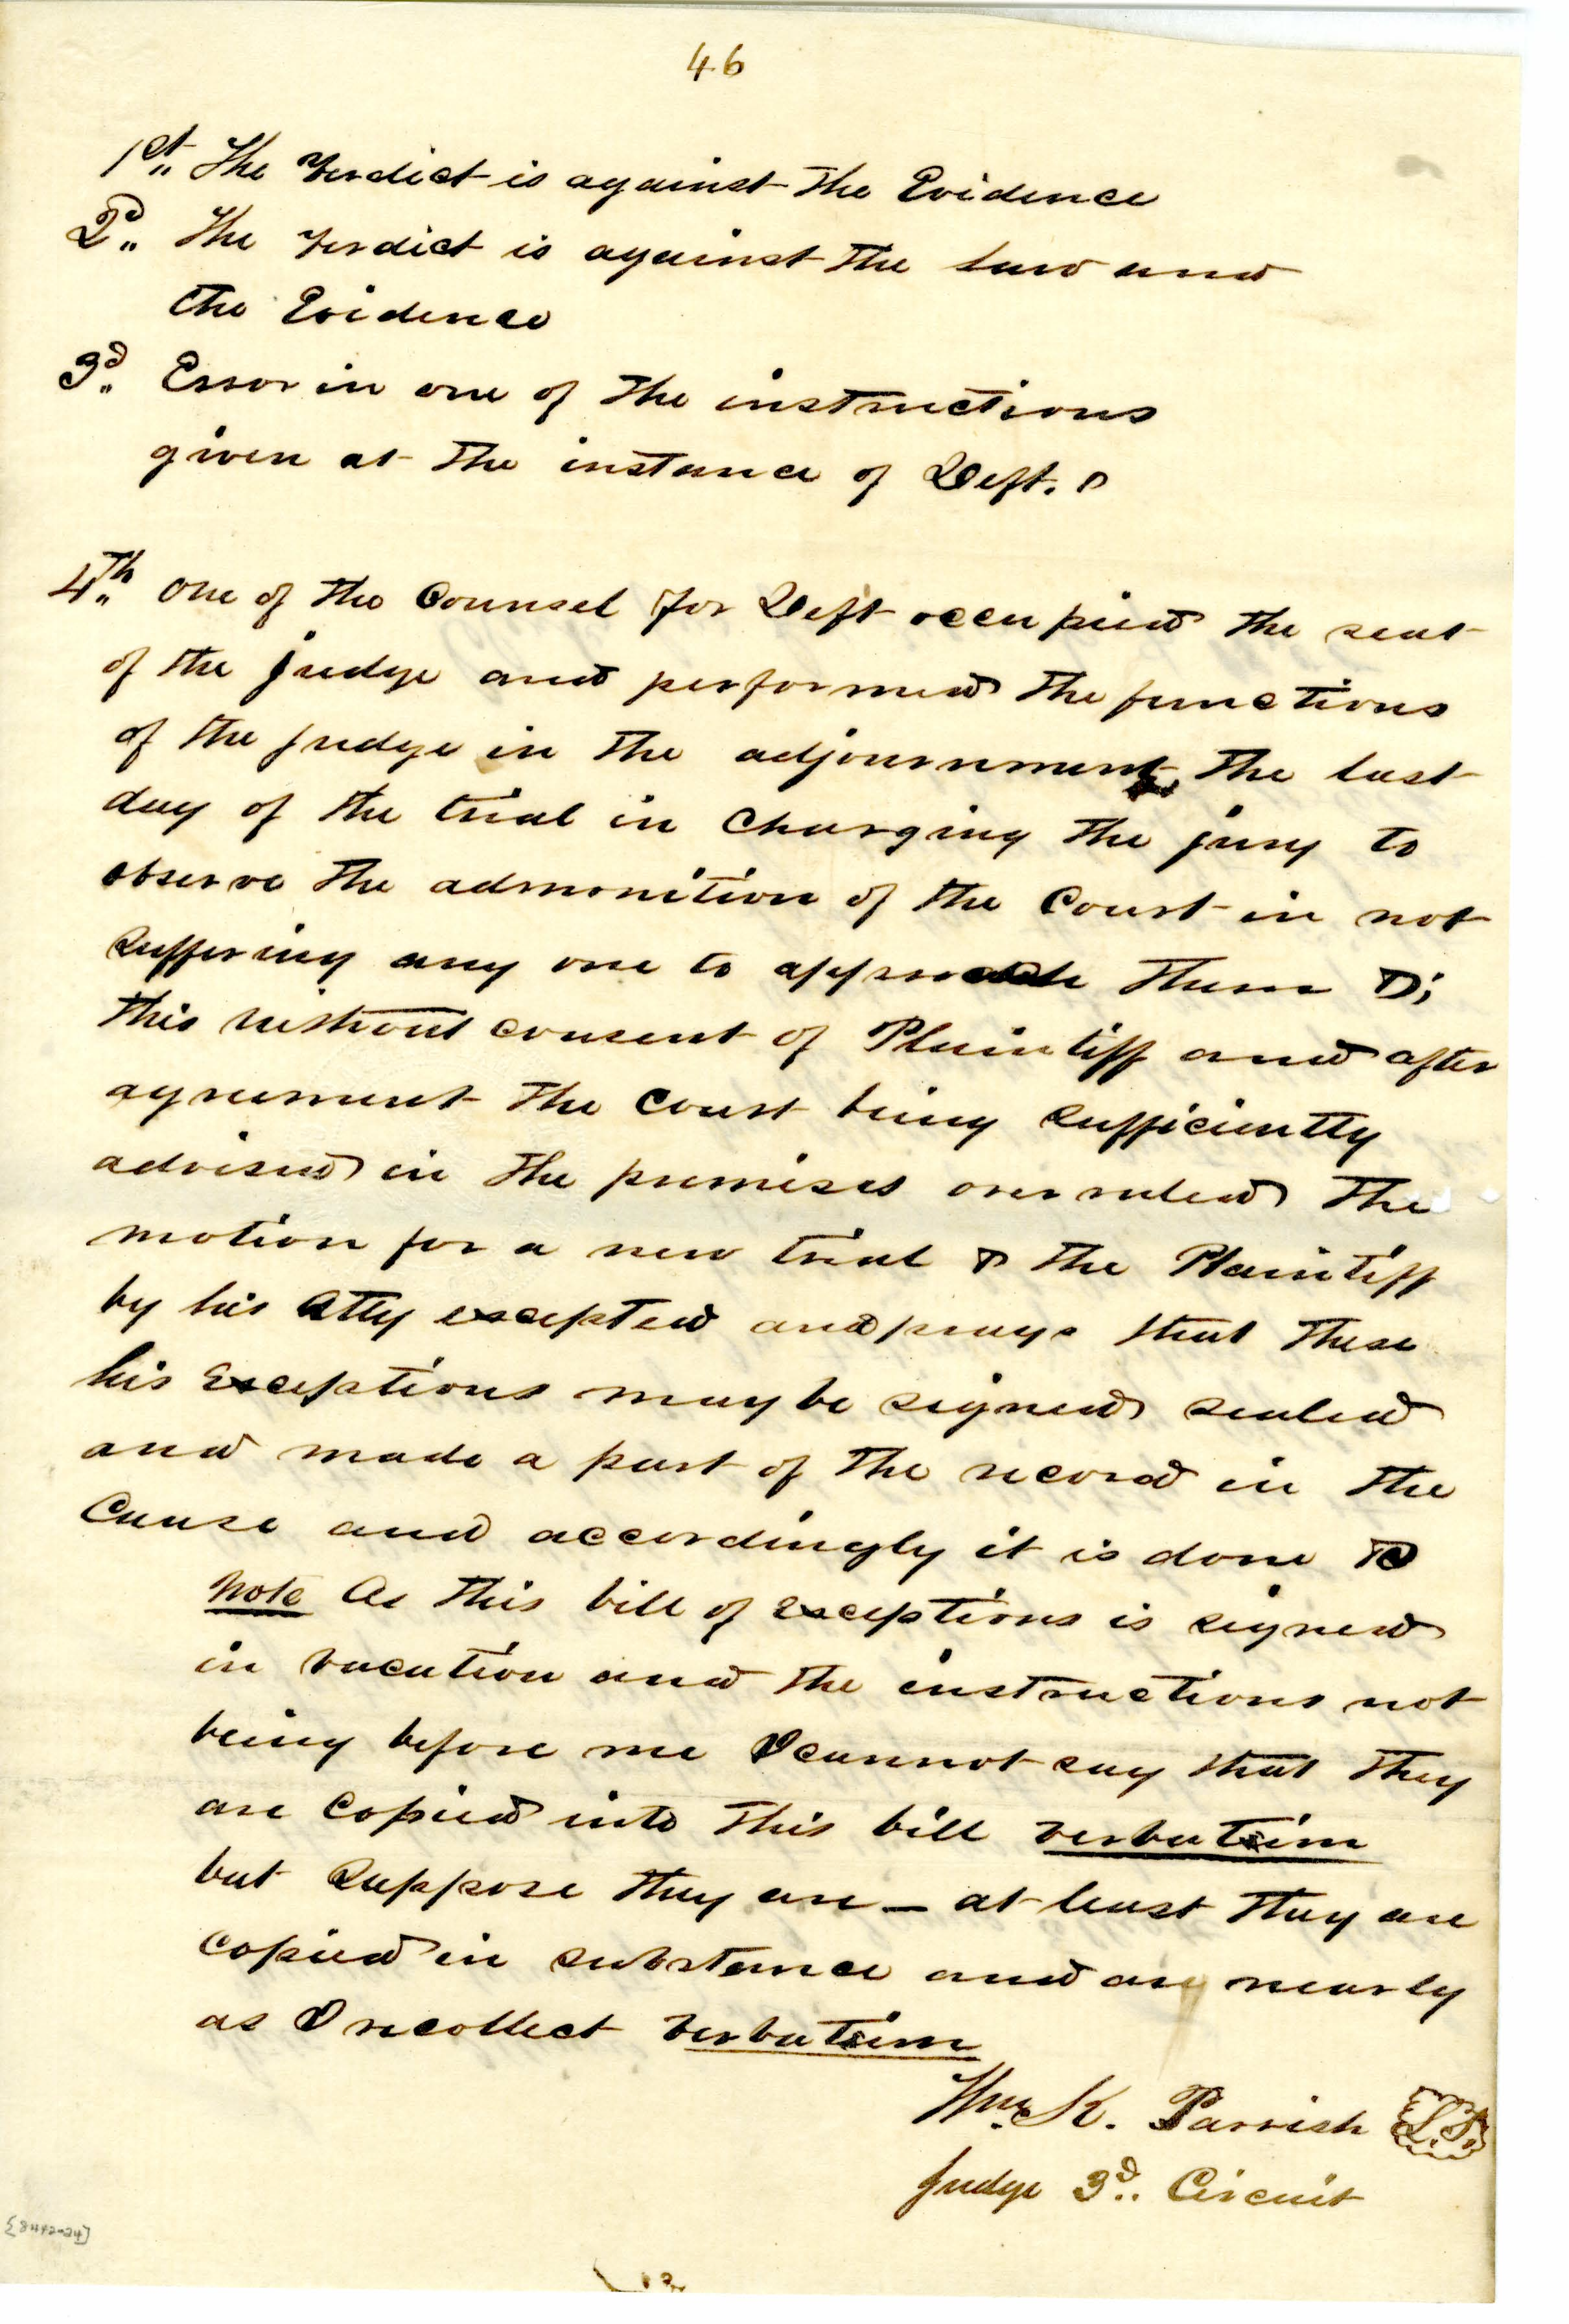 46
1st,, The Verdict is against the Evidence
2d,, The Verdict is against the law and
the Evidence
3d,, Error in one of the instructions
given at the instance of Deft.
4th,, One of the Counsel for Deft occupied the seat
of the judge and performed the functions
of the judge in the adjournment, the last
day of the trial in charging the jury to
observe the admonition of the Court in not
suffering any one to approach them
this without consent of Plaintiff and after
agreement the Court being sufficiently
advised in the premises overruled the
motion for a new trial & the Plaintiff
by his Atty excepted and prays that these
his Exceptions may be signed sealed
and made a part of the record in the
Cause and accordingly it is done
Note As this bill of Exceptions is signed
in vacation and the instructions not
being before me I cannot say that they
are copied into this bill verbatim
but suppose they are — at least they are
copied in substance and as nearly
as I recollect verbatim
Wm. K. Parrish L.S.
Judge 3d.. Circuit